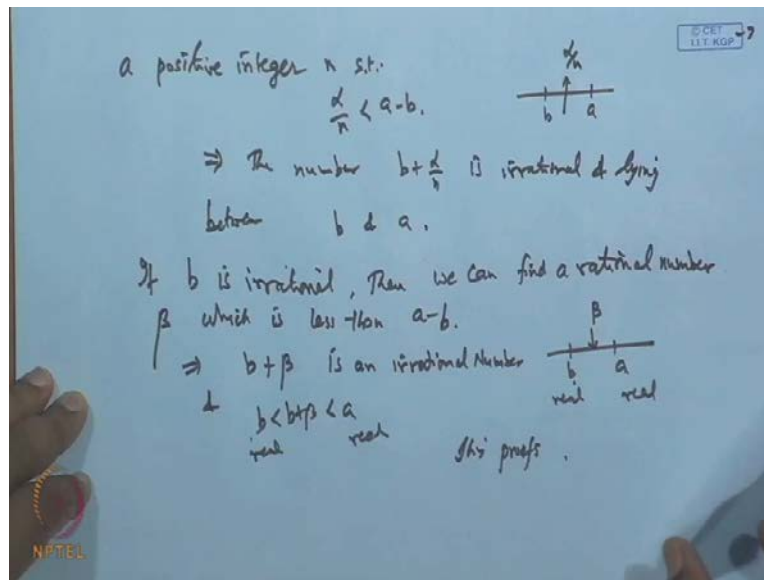 © CET
I.I.T. KGP
a positive integer n s.t.
α/n < a-b.
α/n
b a
⇒ The number b+α/n is irrational & lying
between b & a.
If b is irrational, Then we can find a rational number
β which is less than a-b.
⇒ b+β is an irrational Number
β
b a
real real
& b<b+β<a
real real
This proofs.
NPTEL